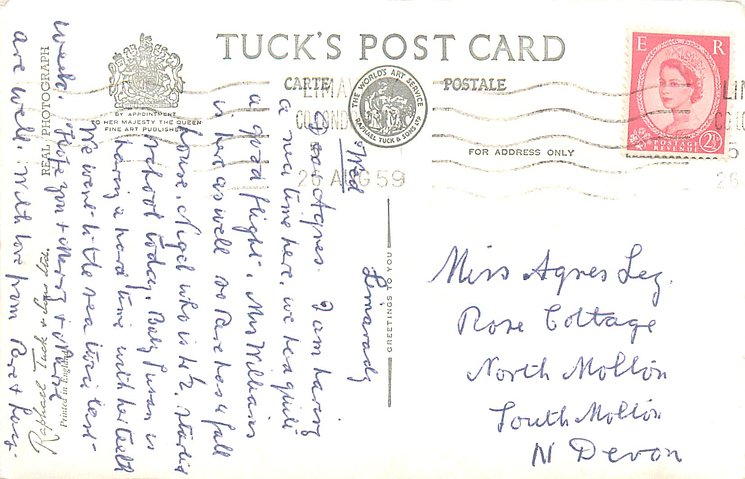 TUCK'S POST CARD
CARTE POSTALE
BY APPOINTMENT
TO HER MAJESTY THE QUEEN
FINE ART PUBLISHERS
THE WORLD'S ART SERVICE
RAPHAEL TUCK & SONS LTD
FOR ADDRESS ONLY
E R
POSTAGE
REVENUE
2½
26 AUG 59
REAL PHOTOGRAPH
Raphael Tuck & Sons Ltd.
Printed in England
GREETINGS TO YOU
Limavady
Wed
Dear Agnes. I am having
a nice time here, we had quite
a good flight. Mrs Williams
is here as well so have a full
house. Nigel who is 4½ started
school today. Baby Susan is
having a hard time with her teeth
We went to the sea twice last
week. Hope you & Mary &
are well. With love from & Lucy
Miss Agnes Ley.
Rose Cottage
North Molton
South Molton
N Devon